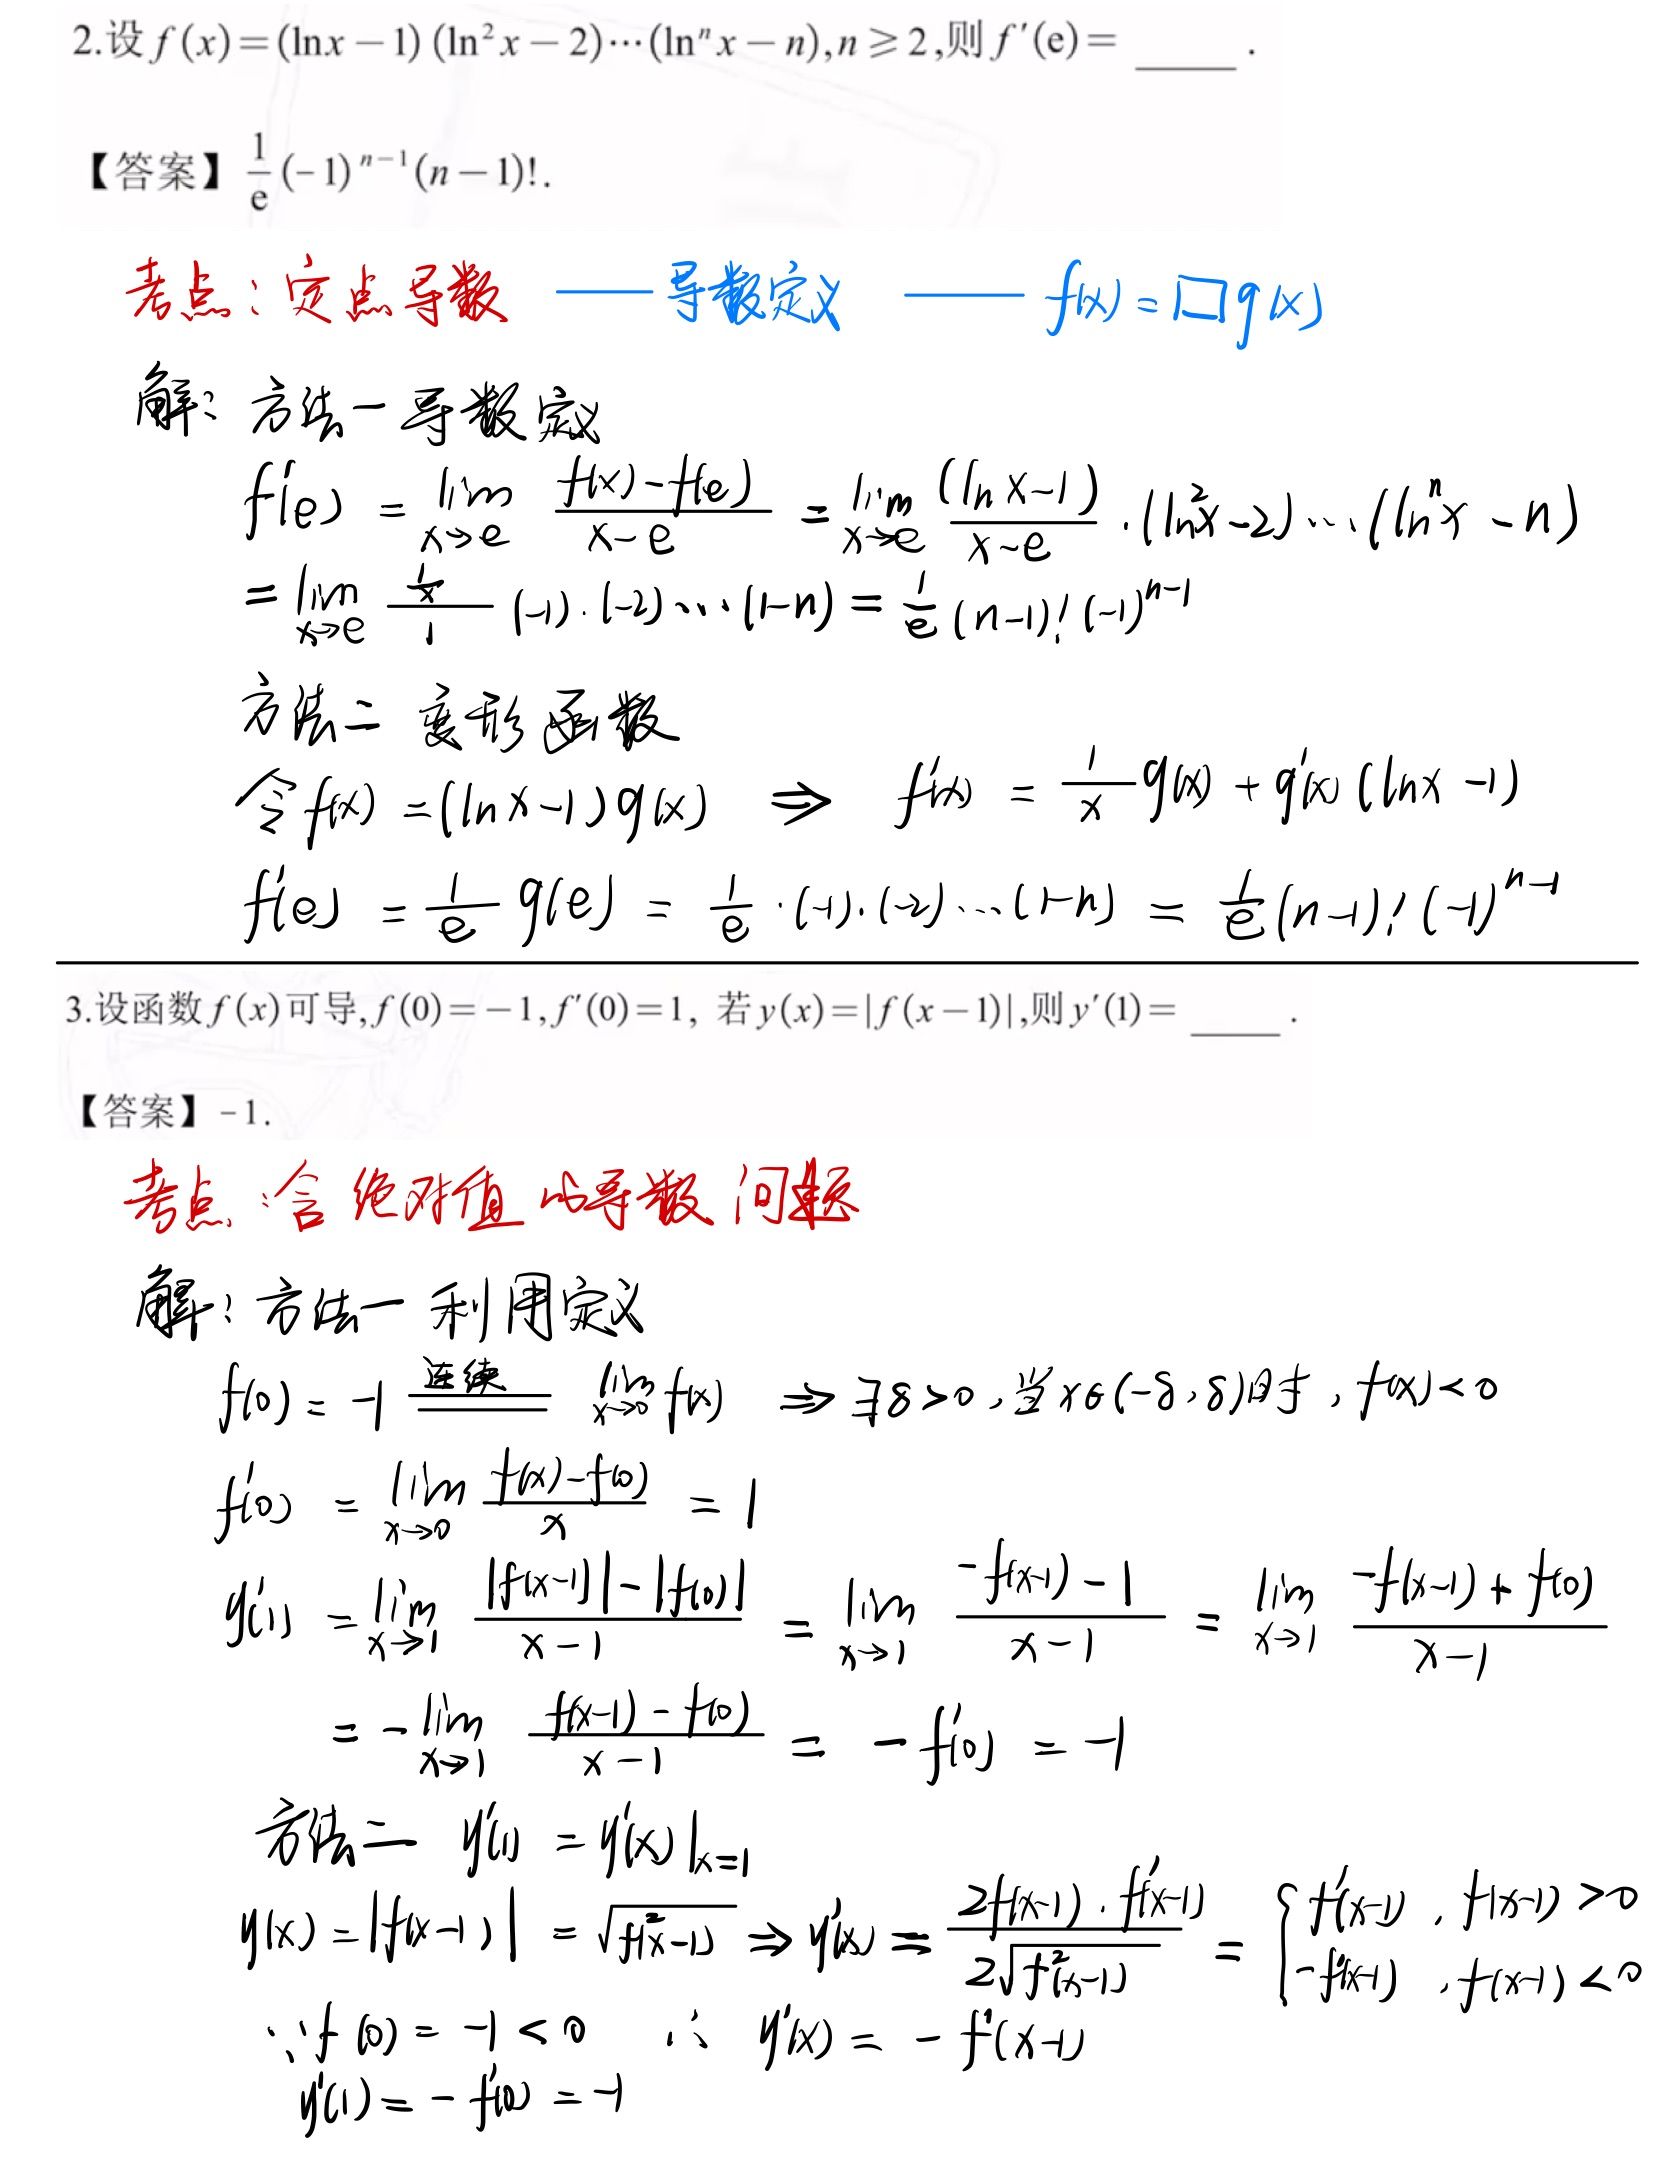 2.设 f(x)=(lnx－1)(ln²x－2)⋯(lnⁿx－n),n≥2,则 f′(e)= ____ .
【答案】 1/e (－1)ⁿ⁻¹(n－1)!.
考点：定点导数 —— 导数定义 —— f(x)=□g(x)
解：方法一 导数定义
f′(e) = lim x→e (f(x)-f(e))/(x-e) = lim x→e (ln x-1)/(x-e) ·(ln²x-2)⋯(lnⁿx-n)
= lim x→e (1/x)/1 (-1)·(-2)⋯(1-n) = 1/e (n-1)! (-1)ⁿ⁻¹
方法二 变形函数
令f(x) =(ln x-1)g(x) ⇒ f′(x) = 1/x g(x) + g′(x)(lnx -1)
f′(e) = 1/e g(e) = 1/e ·(-1)·(-2)⋯(1-n) = 1/e (n-1)! (-1)ⁿ⁻¹
3.设函数 f(x)可导,f(0)=－1,f′(0)=1, 若 y(x)=|f(x－1)|,则 y′(1)= ____ .
【答案】 －1.
考点：含绝对值的导数问题
解：方法一 利用定义
f(0) = -1 连续 lim x→0 f(x) ⇒ ∃δ>0,当x∈(-δ,δ)时,f(x)<0
f′(0) = lim x→0 (f(x)-f(0))/x = 1
y′(1) = lim x→1 (|f(x-1)|-|f(0)|)/(x-1) = lim x→1 (-f(x-1)-1)/(x-1) = lim x→1 (-f(x-1)+f(0))/(x-1)
= - lim x→1 (f(x-1)-f(0))/(x-1) = -f′(0) = -1
方法二 y′(1) = y′(x)|x=1
y(x) = |f(x-1)| = √f²(x-1) ⇒ y′(x) = 2f(x-1)·f′(x-1)/2√f²(x-1) = { f′(x-1) , f(x-1)>0
-f′(x-1) , f(x-1)<0
∵f(0) = -1<0 ∴ y′(x) = -f′(x-1)
y′(1) = -f′(0) = -1